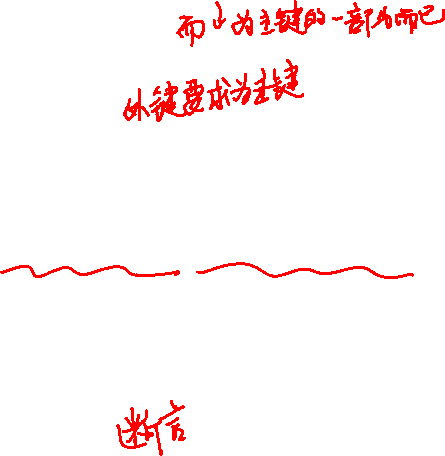 而为主键的一部分而已
外键要求为主键
断言